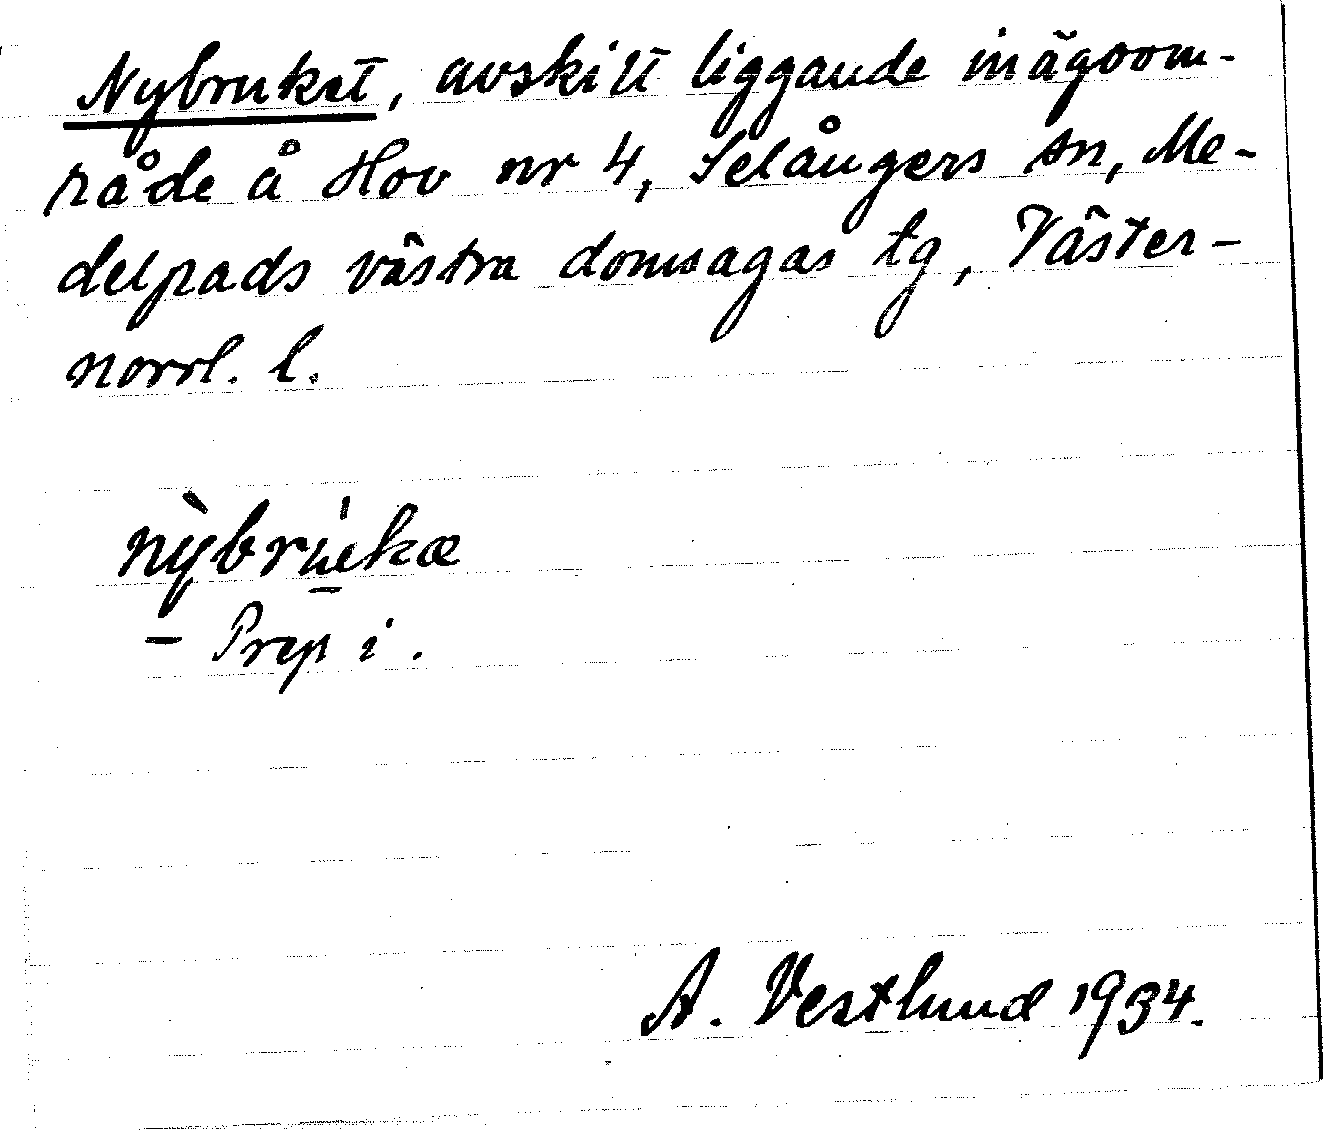 Nybruket, avskilt liggande inägoom-
råde å Hov nr 4, Selångers sn, Me-
delpads västra domsagas tg, Väster-
norrl. l.
nỳbru̍kæ
– Prep i.
A. Vestlund 1934.